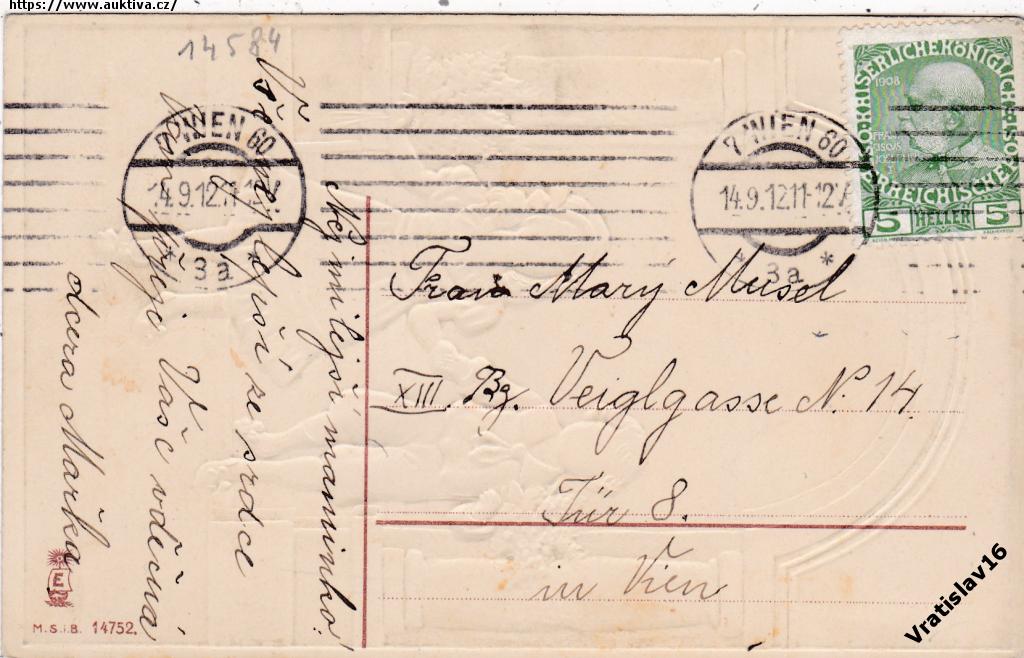 https://www.auktiva.cz/
14584
7 WIEN 60
14.9.12.11-12V
* 3a *
7 WIEN 60
14.9.12.11-12V
* 3a *
KAISERLICHEKÖNIGLICHE
ÖSTERREICHISCHE
1908
5 HELLER 5
Nejmilejší maminko!
Vše nejlepší ze srdce
přeje Vaše vděčná
dcera Mařka
Frau Mary Musel
XIII. Bz. Veiglgasse N. 14
Tür 8.
in Wien
E
M.S.i.B. 14752.
Vratislav16